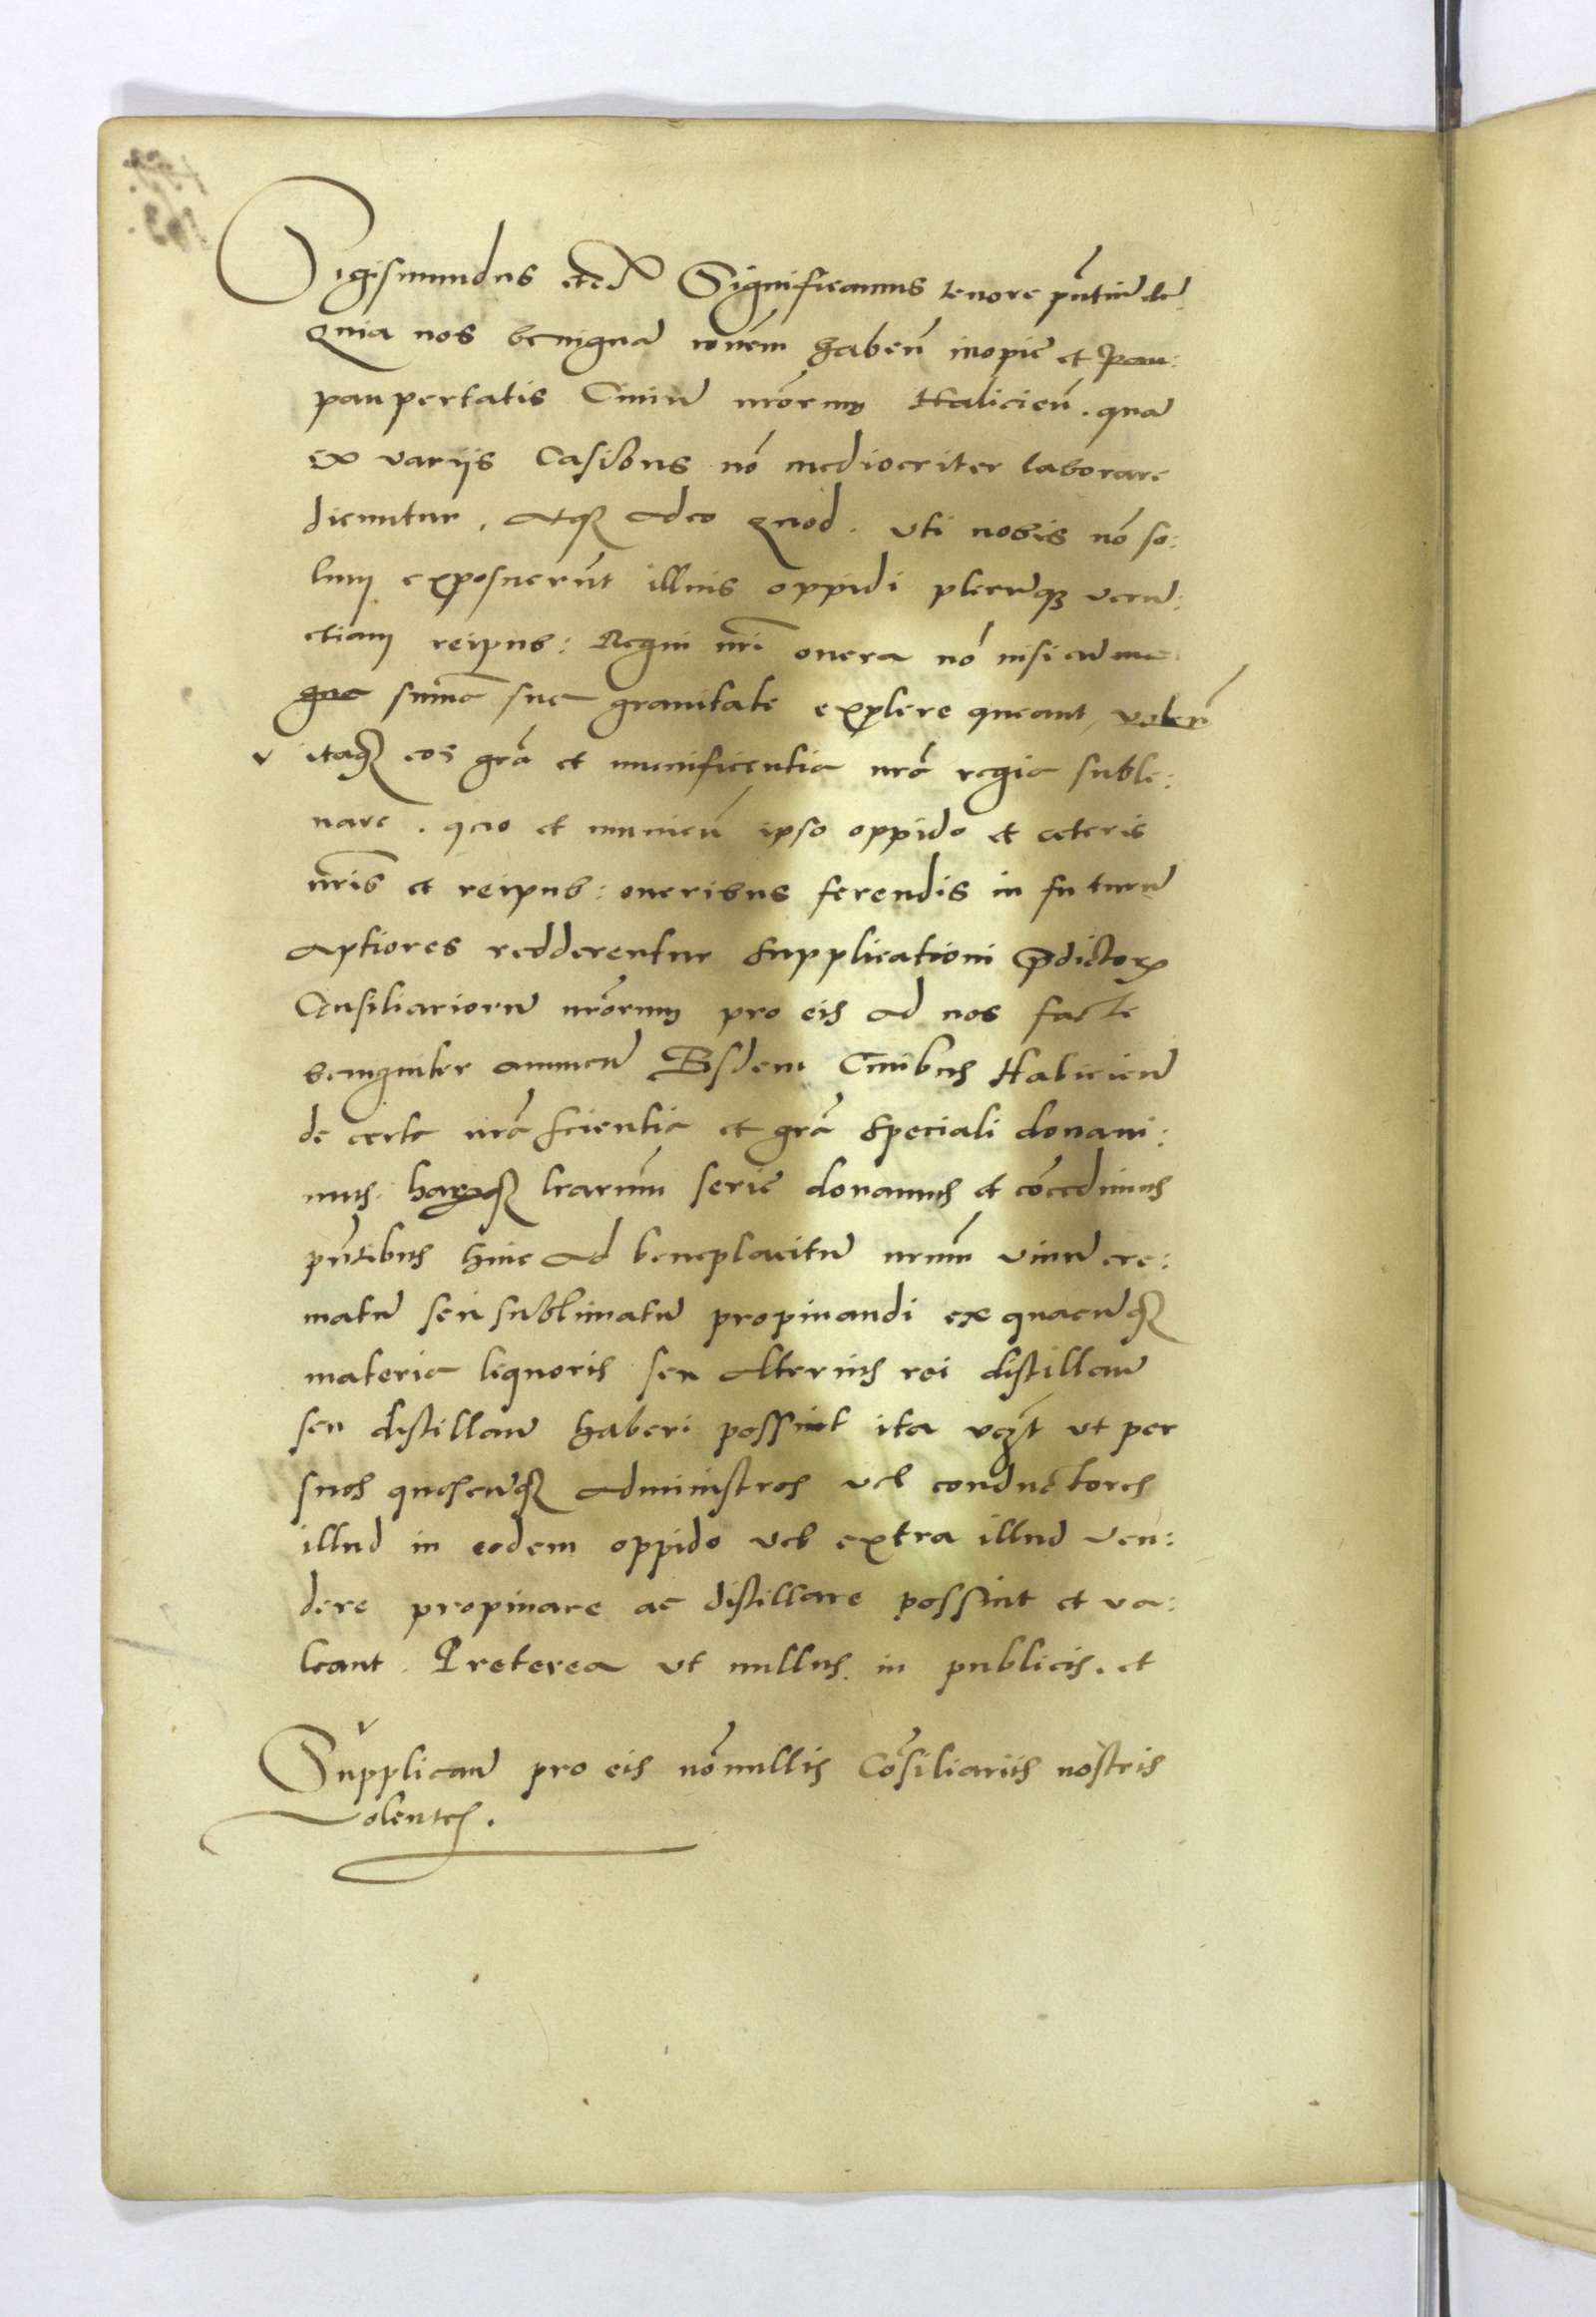 Sigismundus etc. Significamus tenore pñtiũ etc̃:
Quia nos benignã rõnem habeñ inopie et pau:
paupertatis Ciuiũ nr̃orum Halicieñ. qua
ex varijs Casibus nõ mediocriter laborare
dicuntur. atq̃ adeo quod. vti nobis nõ so:
lum exposuerũt illius oppidi plerũq̃ verũ:
etiam reipub: Regni nr̃i onera nõ nisi cũ
summa sue grauitate explere queant, voleñ
v itaq̃ eos gr̃a et munificentia nr̃a regia suble:
uare. quo et munieñ ipso oppido et ceteris
nr̃is et reipub: oneribus ferendis in futurũ
aptiores redderentur supplicationi p̃dictorum
Cõnsiliariorũ nr̃orum pro eis ad nos facte
benigniter annueñ Eisdem Ciuibus Halicieñ
de certa nr̃a scientia et gr̃a speciali donaui:
mus. harumq̃ lr̃arum serie donamus et cõcedimus
pñtibus hinc ad beneplacitũ nr̃um vinũ cre:
matũ seu sublimatũ propinandi ex quacũq̃
materia liquoris seu alterius rei distillatũ
seu distillatũ haberi possint ita vcz̃t vt per
suos quoscũq̃ administros vel conductores
illud in eodem oppido vel extra illud ven:
dere propinare ac distillare possint et va:
leant. Preterea vt nullus in publicis. et
v
Supplicatũ pro eis nõnullis Cõsiliariis nostris
Volentes.